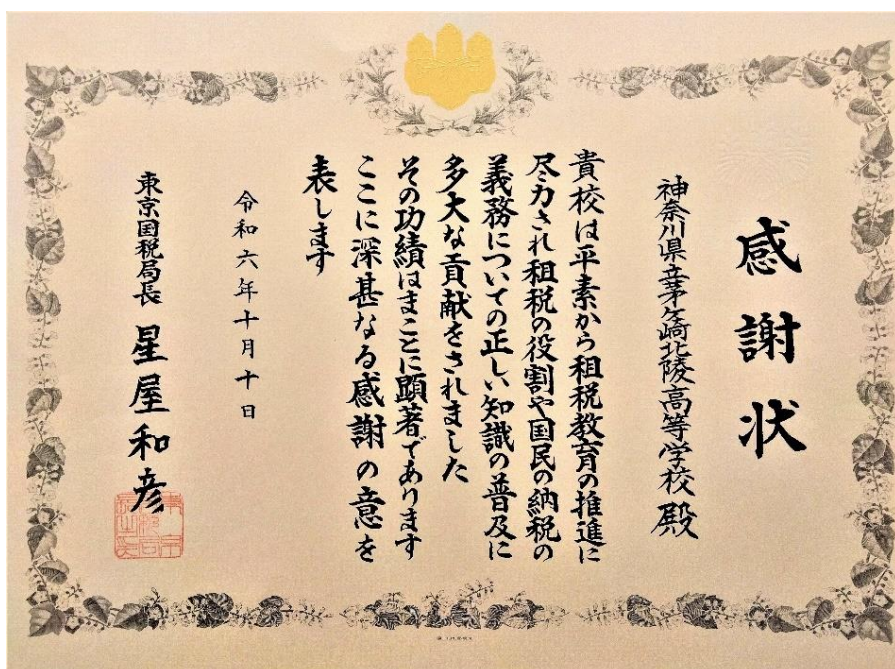 感謝状
神奈川県立茅ケ崎北陵高等学校 殿
貴校は平素から租税教育の推進に
尽力され租税の役割や国民の納税の
義務についての正しい知識の普及に
多大な貢献をされました
その功績はまことに顕著であります
ここに深甚なる感謝の意を
表します
令和六年十月十日
東京国税局長 星屋和彦